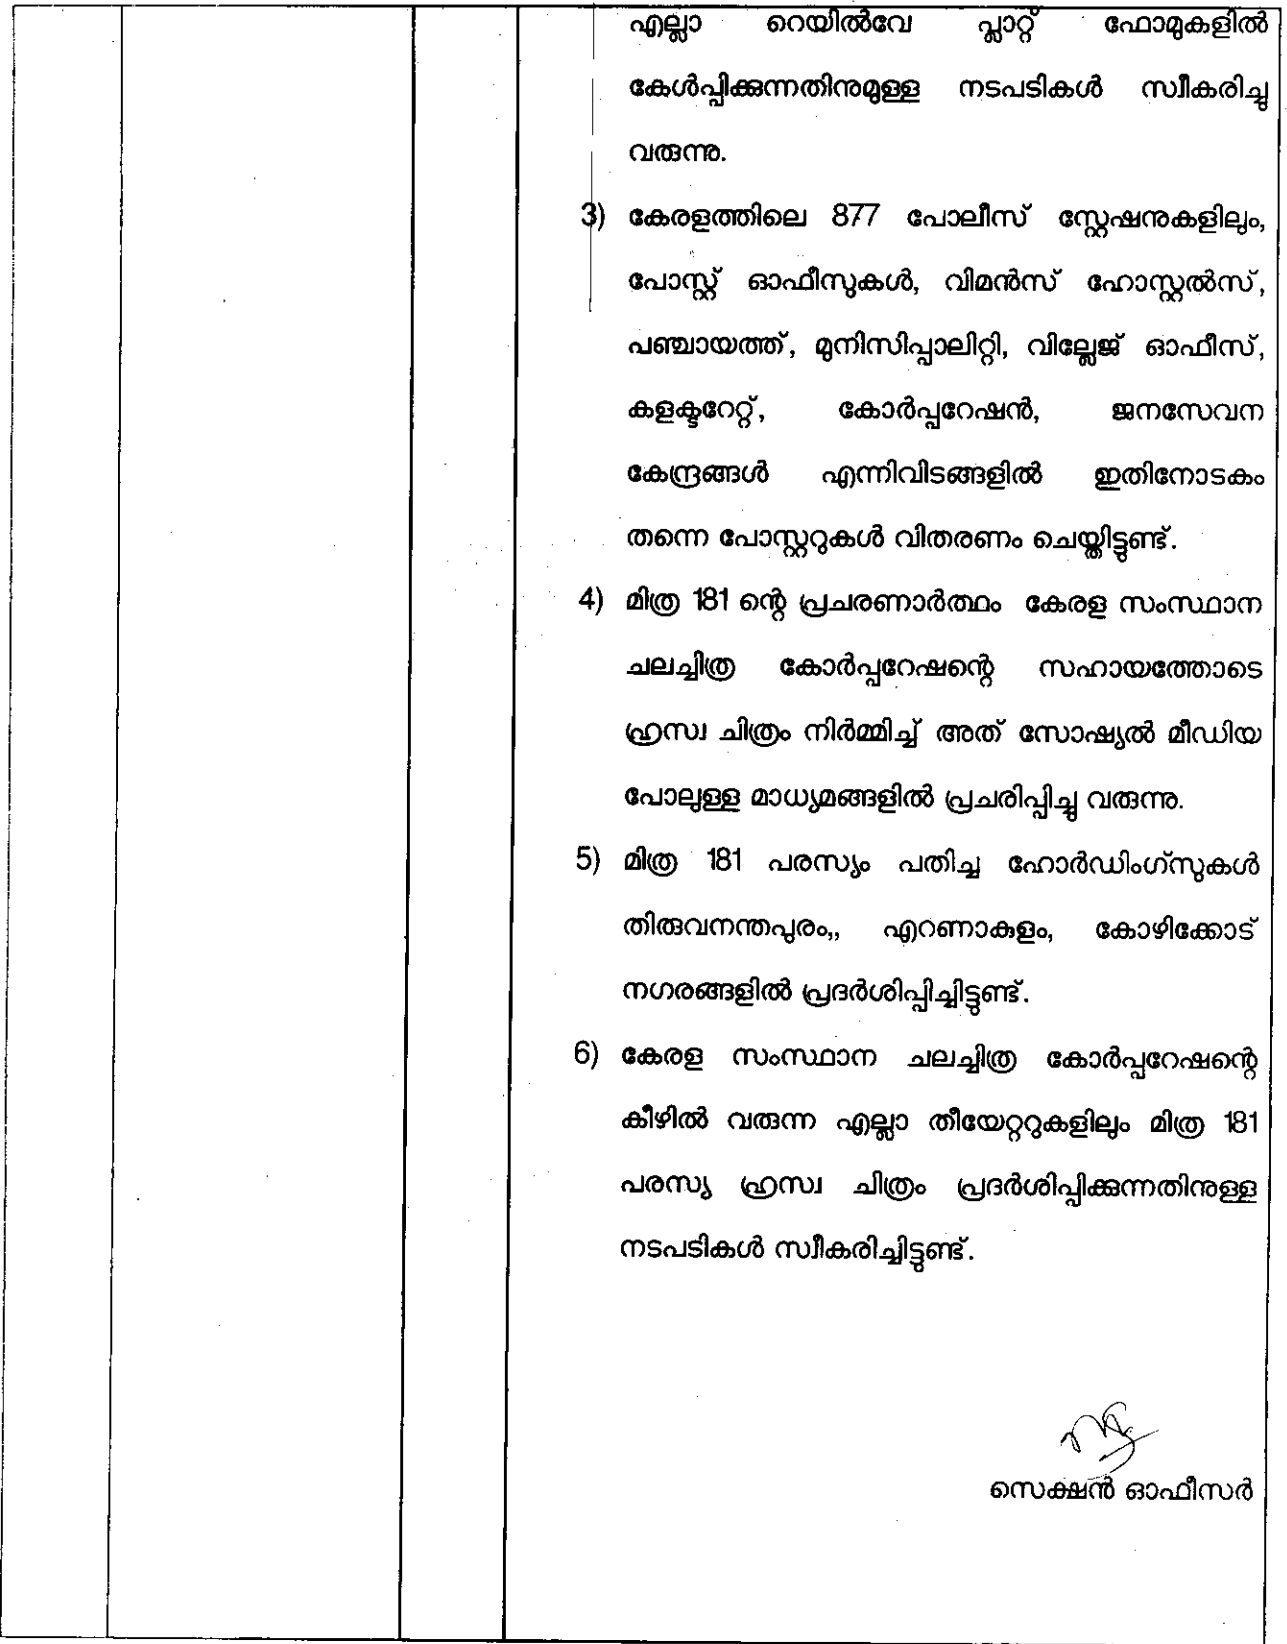 എല്ലാ റെയിൽവേ പ്ലാറ്റ് ഫോമുകളിൽ
കേൾപ്പിക്കുന്നതിനുമുള്ള നടപടികൾ സ്വീകരിച്ചു
വരുന്നു.
3) കേരളത്തിലെ 877 പോലീസ് സ്റ്റേഷനുകളിലും,
പോസ്റ്റ് ഓഫീസുകൾ, വിമൻസ് ഹോസ്റ്റൽസ്,
പഞ്ചായത്ത്, മുനിസിപ്പാലിറ്റി, വില്ലേജ് ഓഫീസ്,
കളക്ടറേറ്റ്, കോർപ്പറേഷൻ, ജനസേവന
കേന്ദ്രങ്ങൾ എന്നിവിടങ്ങളിൽ ഇതിനോടകം
തന്നെ പോസ്റ്ററുകൾ വിതരണം ചെയ്തിട്ടുണ്ട്.
4) മിത്ര 181 ന്റെ പ്രചരണാർത്ഥം കേരള സംസ്ഥാന
ചലച്ചിത്ര കോർപ്പറേഷന്റെ സഹായത്തോടെ
ഹ്രസ്വ ചിത്രം നിർമ്മിച്ച് അത് സോഷ്യൽ മീഡിയ
പോലുള്ള മാധ്യമങ്ങളിൽ പ്രചരിപ്പിച്ചു വരുന്നു.
5) മിത്ര 181 പരസ്യം പതിച്ച ഹോർഡിംഗ്സുകൾ
തിരുവനന്തപുരം,, എറണാകുളം, കോഴിക്കോട്
നഗരങ്ങളിൽ പ്രദർശിപ്പിച്ചിട്ടുണ്ട്.
6) കേരള സംസ്ഥാന ചലച്ചിത്ര കോർപ്പറേഷന്റെ
കീഴിൽ വരുന്ന എല്ലാ തീയേറ്ററുകളിലും മിത്ര 181
പരസ്യ ഹ്രസ്വ ചിത്രം പ്രദർശിപ്പിക്കുന്നതിനുള്ള
നടപടികൾ സ്വീകരിച്ചിട്ടുണ്ട്.
സെക്ഷൻ ഓഫീസർ